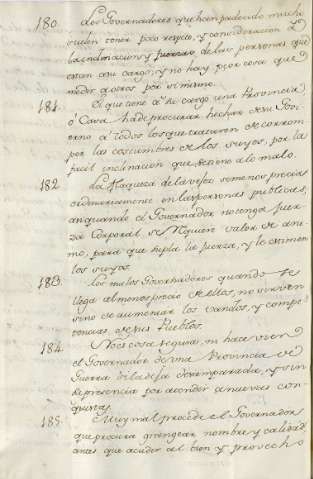 180. Los Governadores que han padecido mucho
suelen tener poco respeto, y consideracion a
la inclinacion y fuerzas de las personas que
estan a su cargo, y no hay peor cosa que
medir a otros por si mismo.
181. El que tiene a su cargo una Provincia
o Casa ha de procurar hechar de su Govi
erno a todos los que trataren de corrom
per las costumbres de los suyos, por la
facil inclinacion que se tiene a lo malo.
182. La flaqueza de la vejez es menos precia
ordinariamente en las personas publicas,
aunque el Governador no tenga fuer
zas corporal se requiere valor de ani
mo, para que supla la fuerza, y le estimen
los suyos.
183. Los malos Governadores quando se
llega al menosprecio de ellos, no sirven
sino de aumentar los vandos, y compe
tencias de sus Pueblos.
184. No es cosa segura, ni hace bien
el Governador de una Provincia de
Guerra si la deja desamparada, y sin
su presencia por atender a nuevas con
quistas.
185. Muy mal procede el Governador
que procura grangear nombre, y calidad
antes que acudir al bien y provecho